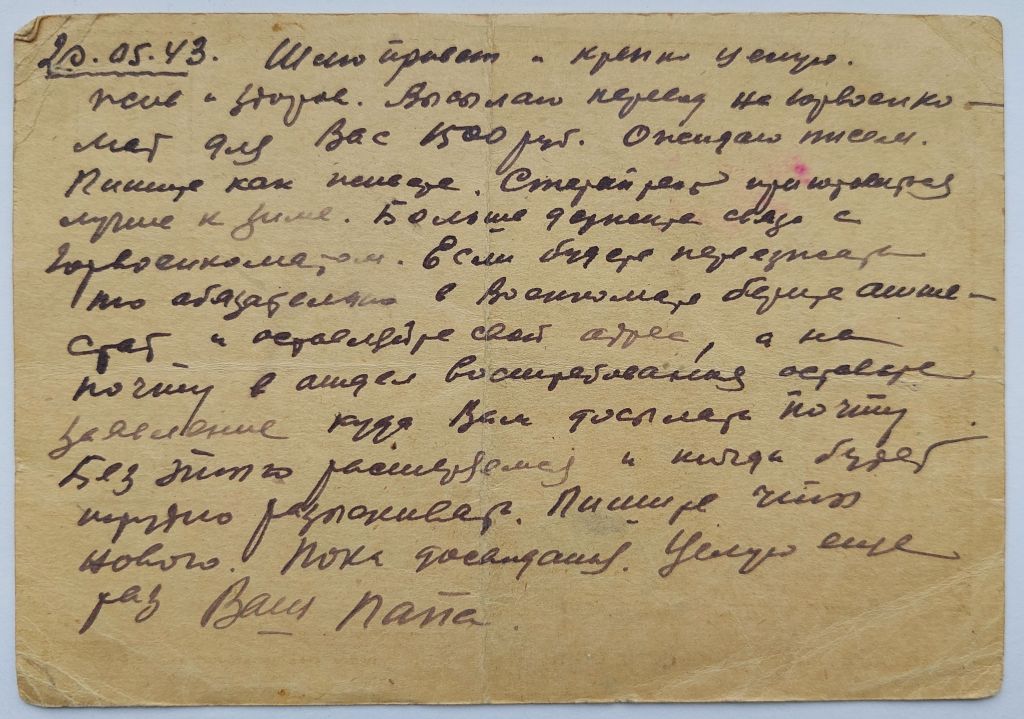 20.05.43. Шлю привет и крепко целую.
жив и здоров. Высылаю перевод на горвоенко-
мат для Вас 1500 руб. Ожидаю писем.
Пишите как живете. Старайтесь приготовиться
лучше к зиме. Больше держите связь с
Горвоенкоматом. Если будете переезжать
то обязательно в Военкомате берите атте-
стат и оставляйте свой адрес, а на
почту в отдел востребования оставьте
заявление куда Вам досылать почту
Без этого растеряемся и тогда будет
трудно разыскивать. Пишите что
нового. Пока досвидания. Целую еще
раз Ваш Папа.